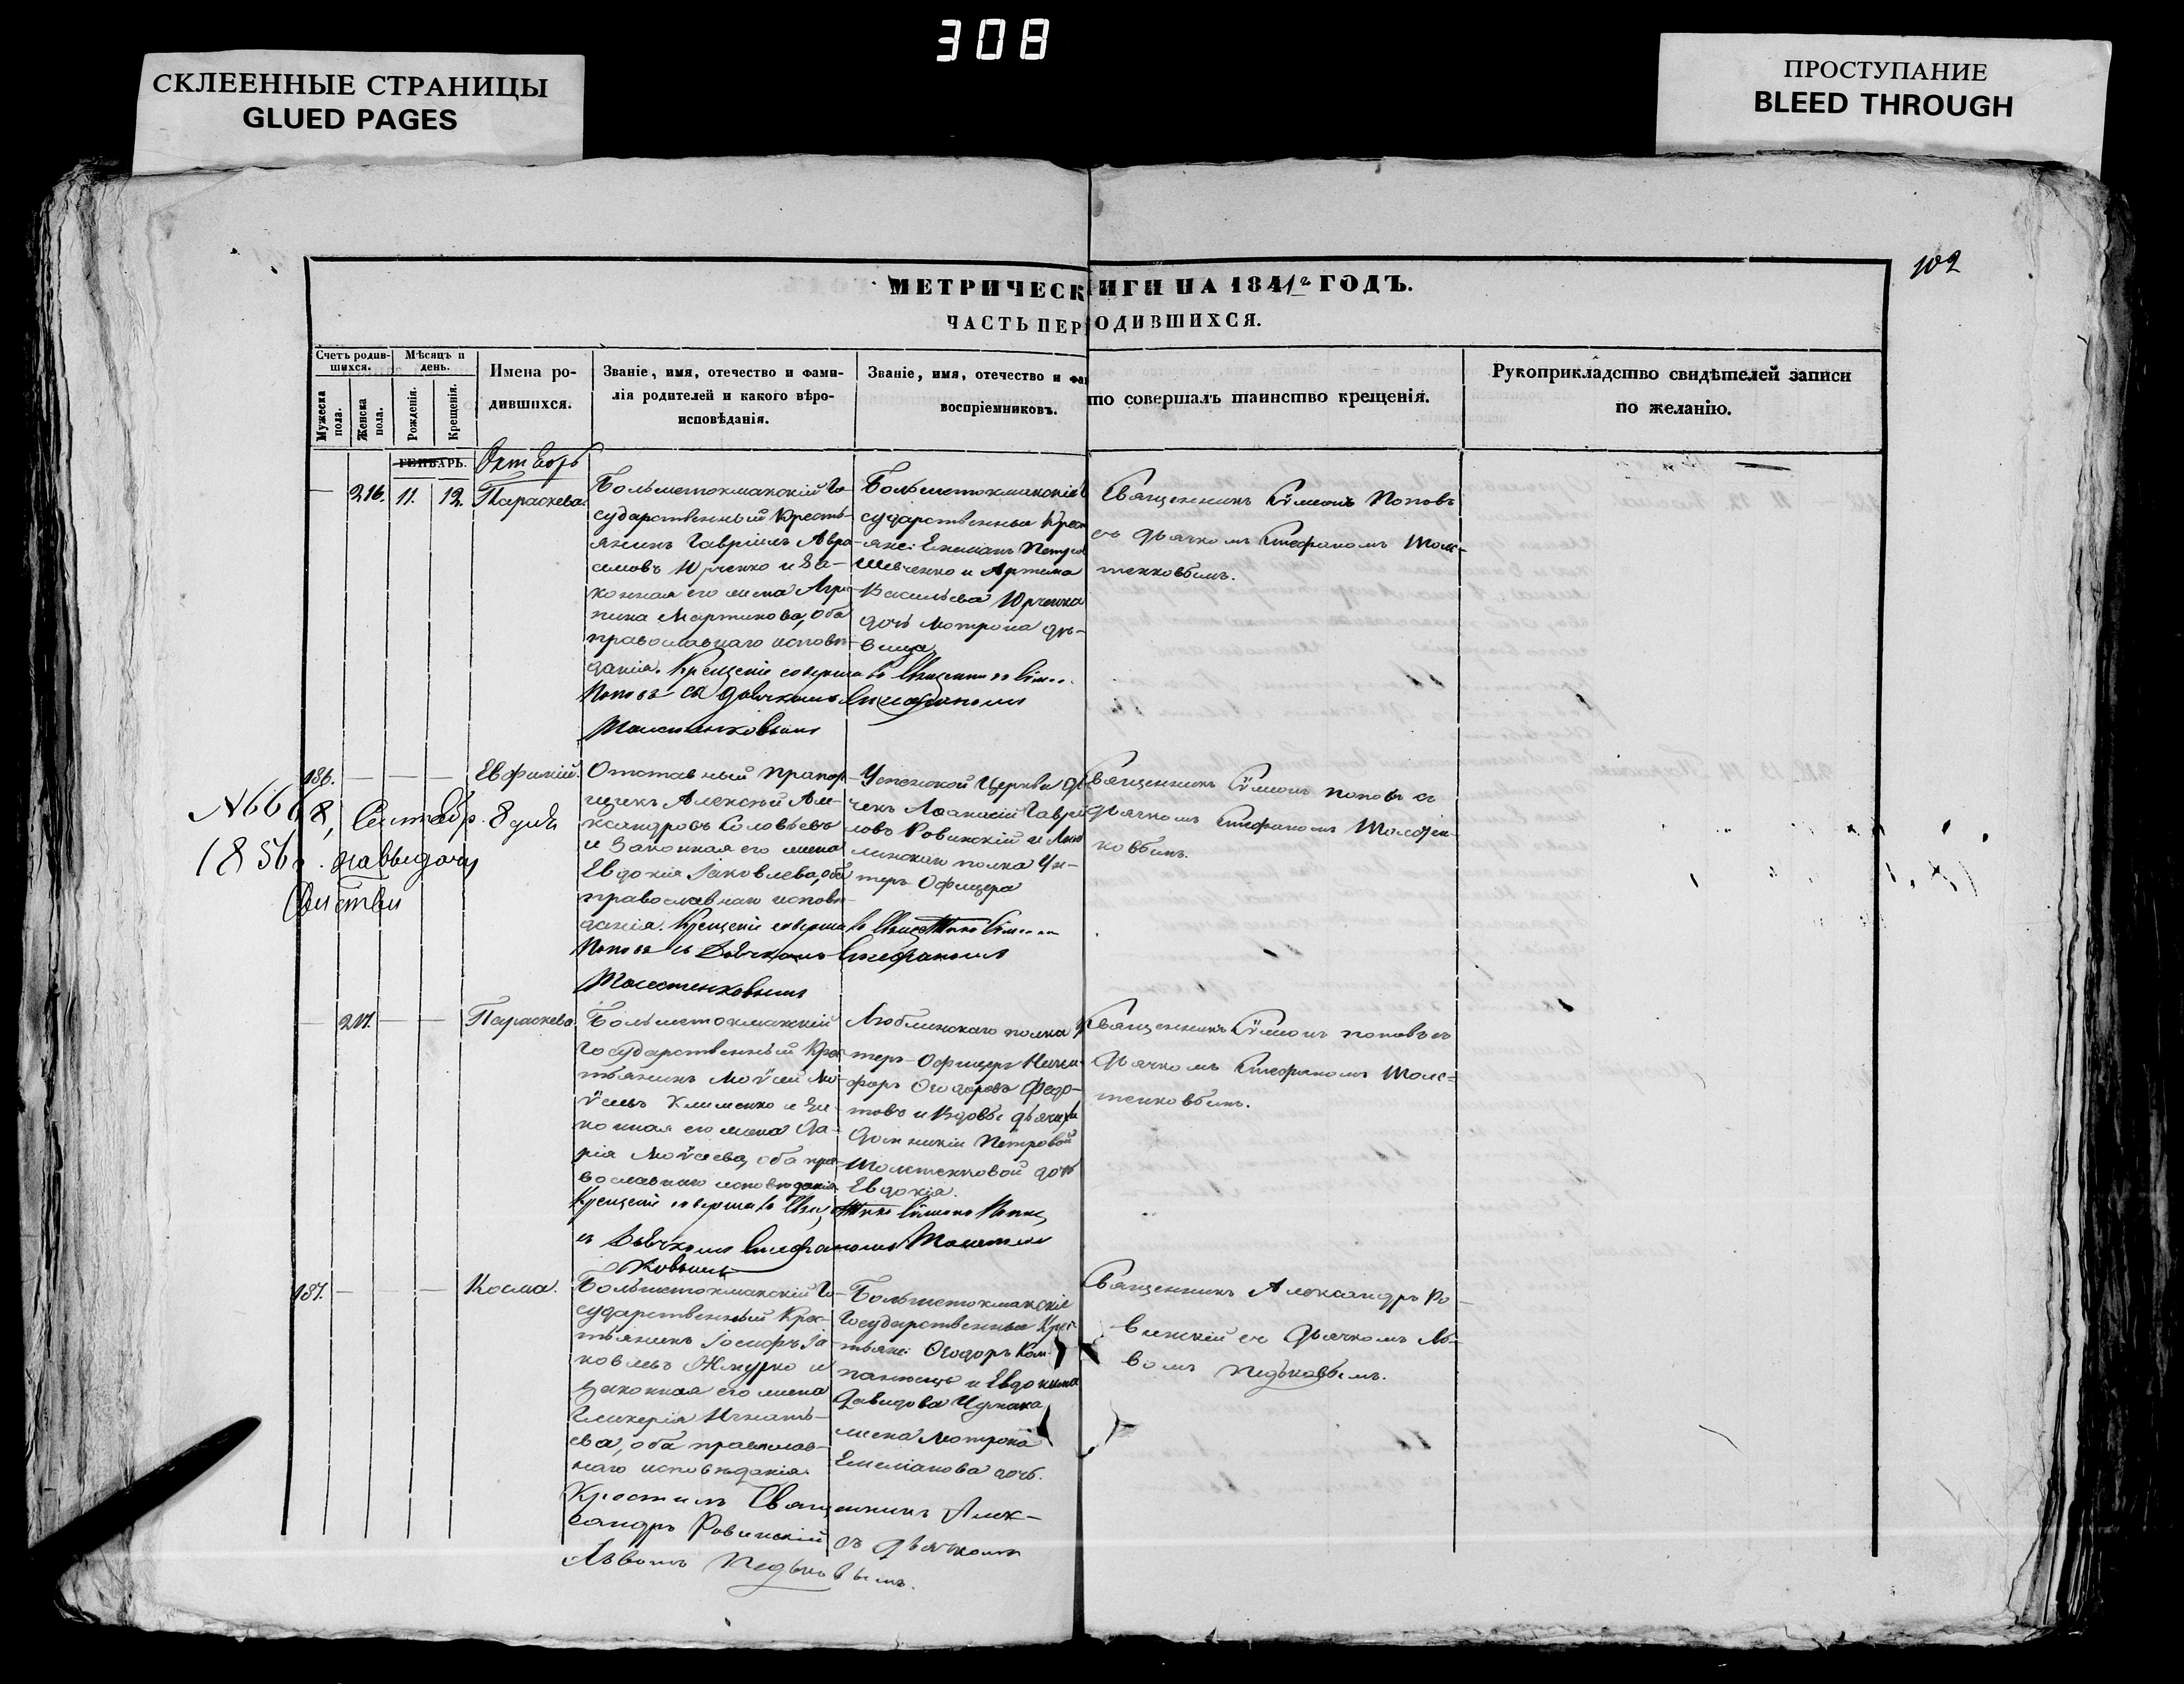 308
СКЛЕЕННЫЕ СТРАНИЦЫ
GLUED PAGES
ПРОСТУПАНИЕ
BLEED THROUGH
102
МЕТРИЧЕСК ИГИ НА 1841го ГОДЪ.
ЧАСТЬ ПЕР ОДИВШИХСЯ.
Счетъ родив-
шихся.
Мужеска пола.
Женска пола.
Мѣсяцъ и
день.
Рожденія.
Крещенія.
Имена ро-
дившихся.
Званіе, имя, отечество и фами-
лія родителей и какого вѣро-
исповѣданія.
Званіе, имя, отечество и фа
воспріемниковъ.
то совершалъ таинство крещенія.
Рукоприкладство свидѣтелей записи
по желанію.
ГЕНВАРЬ. Октябрь
216. 11. 12. Параскева.
Большетокмакскій Го-
сударственный Кресть-
янинъ Гавріилъ Авра-
амовъ Юрченко и За-
конная его жена Агри-
пина Мартинова, оба
православнаго исповѣ-
данія. Крещеніе совершалъ Священникъ
Поповъ съ Дьячкомъ Стефаномъ
Толстенковымъ
Большетокмакскіе
сударственные Крес
яне: Емельянъ Петров
Шевченко и Артема
Васильева Юрченка
дочь Мотрона дѣ-
вица
Священникъ Сѵмеонъ Поповъ
съ дьячкомъ Стефаномъ Толс-
тенковымъ.
186. Евфимій.
№ 6668, Сентябр. 8 дня
1856 г. на выдачу
Отставный Прапор-
щикъ Алексѣй Але-
ксандровъ Соловьевъ
и Законная его жена
Евдокія Іаковлева, оба
православнаго исповѣ-
данія. Крещеніе совершалъ
Поповъ съ Дьячкомъ Стефаномъ
Толстенковымъ
Успенской Церкви Дя
чекъ Аѳанасій Гаврі
ловъ Ровинскій и Люб
линскаго полка Ун-
теръ Офицера
Священникъ Сѵмеонъ Поповъ съ
дьячкомъ Стефаномъ Толстен-
ковымъ.
217. Параскева.
Большетокмакскій
Государственный Крес-
тьянинъ Моѵсей Мо-
ѵсеевъ Клименко и За-
конная его жена Да-
рія Моѵсеева, оба пра-
вославнаго исповѣданія.
Крещеніе совершалъ Сѵмеонъ
съ Дьячкомъ Стефаномъ Толстен
ковымъ
Люблинскаго полка У
теръ-Офицеръ Ники-
форъ Ѳеодоровъ Федо-
товъ и Вдовы дьячихи
Домникіи Петровой
Толстенковой дочь
Евдокія.
Священникъ Сѵмеонъ Поповъ съ
Дьячкомъ Стефаномъ Толс-
тенковымъ.
187. Косма.
Большетокмакскій Го-
сударственный Крес-
тьянинъ Іосифъ Іа-
ковлевъ Жмурко и
Законная его жена
Гликерія Игнать-
ева, оба православ-
наго исповѣданія.
Крестилъ Священникъ Алек-
сандръ Ровинскій съ дьячкомъ
Львомъ Педьковымъ.
Большетокмакскіе
Государственные Крес
тьяне: Ѳеодоръ Ком
панеецъ и Евдокима
Давидова
жена Мотрона
Емеліанова дочь.
Священникъ Александръ Ро-
винскій съ Дьячкомъ Ль-
вомъ Педьковымъ.